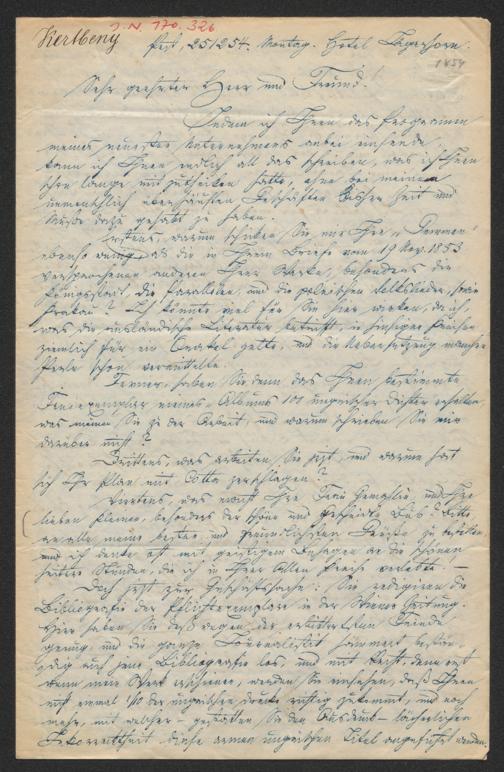 J.N. 170.326
Kertbeny
Pest, 25/2 54. Montag. Hotel Jägerhorn.
1854
Sehr geehrter Herr und Freund!
Indem ich Ihnen das Programm
meines neuesten Unternehmens anbei einsende
kann ich Ihnen endlich all das schreiben, was ich Ihnen
schon lange mitzutheilen hatte, ohne bei meinen
überhäuften Geschäften bisher Zeit und
Muße dazu gehabt zu haben.
Erstens, warum schicken Sie mir Ihre
ebenso wenig als die in Ihrem Briefe vom 19 Nov. 1853
versprochenen anderen Ihrer Werke, besonders die
die und die Volkslieder, sowie
? Ich könnte viel für Sie hier wirken, da ich,
was die ausländische Literatur betrifft, in hiesigen Kreisen
ziemlich für ein Orakel gelte, und die Uebersetzung mancher
Perle schon veranlaßte.
Ferner, haben Sie denn das Ihnen bestimmte
Freiexemplar meines Albums 101 ungrischer Dichter erhalten,
was meinen Sie zu der Arbeit, und warum schrieben Sie mir
darüber nicht?
Drittens, was arbeiten Sie jetzt, und warum hat
sich Ihr Plan mit Cotta zerschlagen?
Viertens, was macht Ihre Frau Gemahlin, und Ihre
lieben Kleinen, besonders der schöne und gescheidte Bub? Bitte
an alle meine besten und freundlichsten Grüße zu bestellen
und ich denke oft mit geistigem Behagen an die schönen
heitere Stunden, die ich in Ihrer Aller Kreise verlebte! —
Doch jetzt zur Geschäftssache: Sie redigiren die
Bibliografie der Pflichtexemplare in der Wiener Zeitung.
Hier haben Sie deß wegen der erbittertsten Feinde
genug und die ganze Journalistik hämmert bestän-
dig auf jene Bibliografie los, und mit Recht, denn erst
wenn mein Werk erschienen, werden Sie einsehen, daß Ihnen
nicht einmal 1/10 der ungarischen Drucke richtig zukommt, und noch
mehr, mit welcher – gestatten Sie den Ausdruck – lächerlichen
Inkorrektheit diese armen ungrischen Titel angeführt werden.